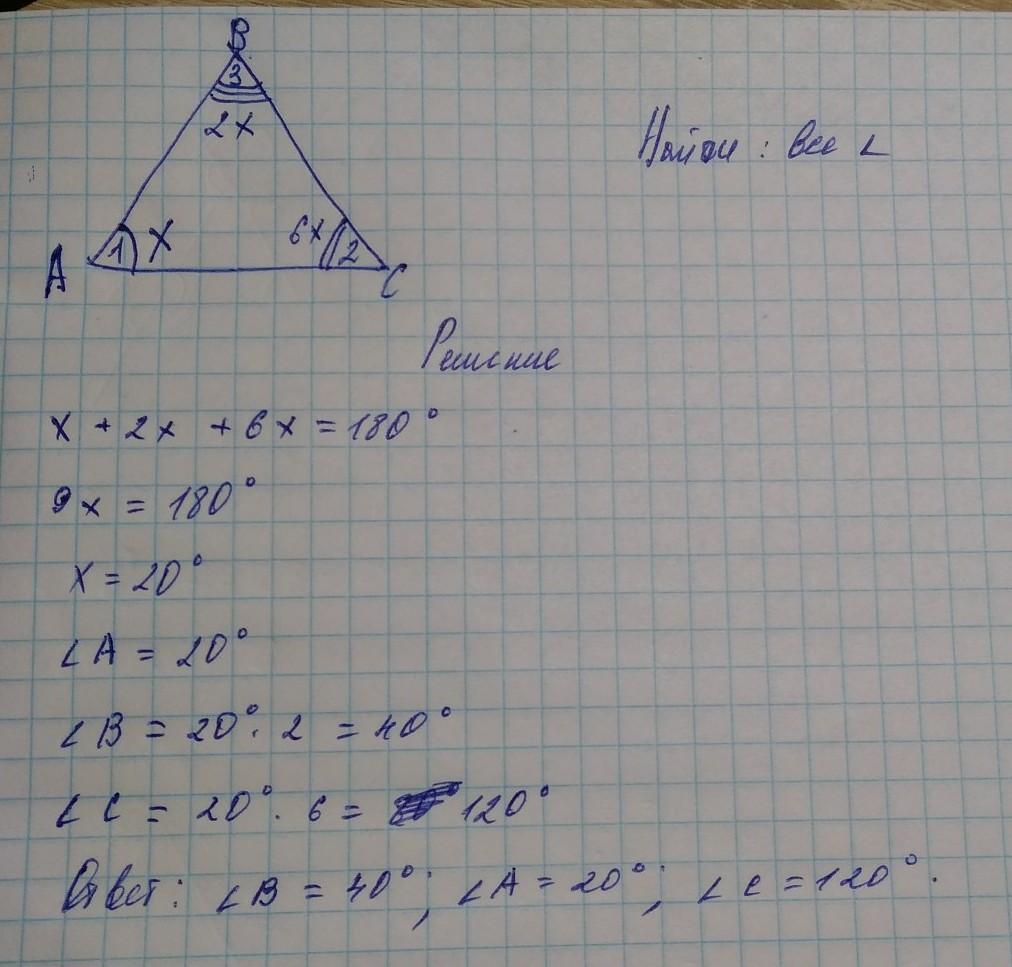 B
3
2x
Найти: все ∠
1 x
6x 2
A
C
Решение
x + 2x + 6x = 180°
9x = 180°
x = 20°
∠A = 20°
∠B = 20° · 2 = 40°
∠C = 20° · 6 = 120°
Ответ: ∠B = 40°; ∠A = 20°; ∠C = 120°.